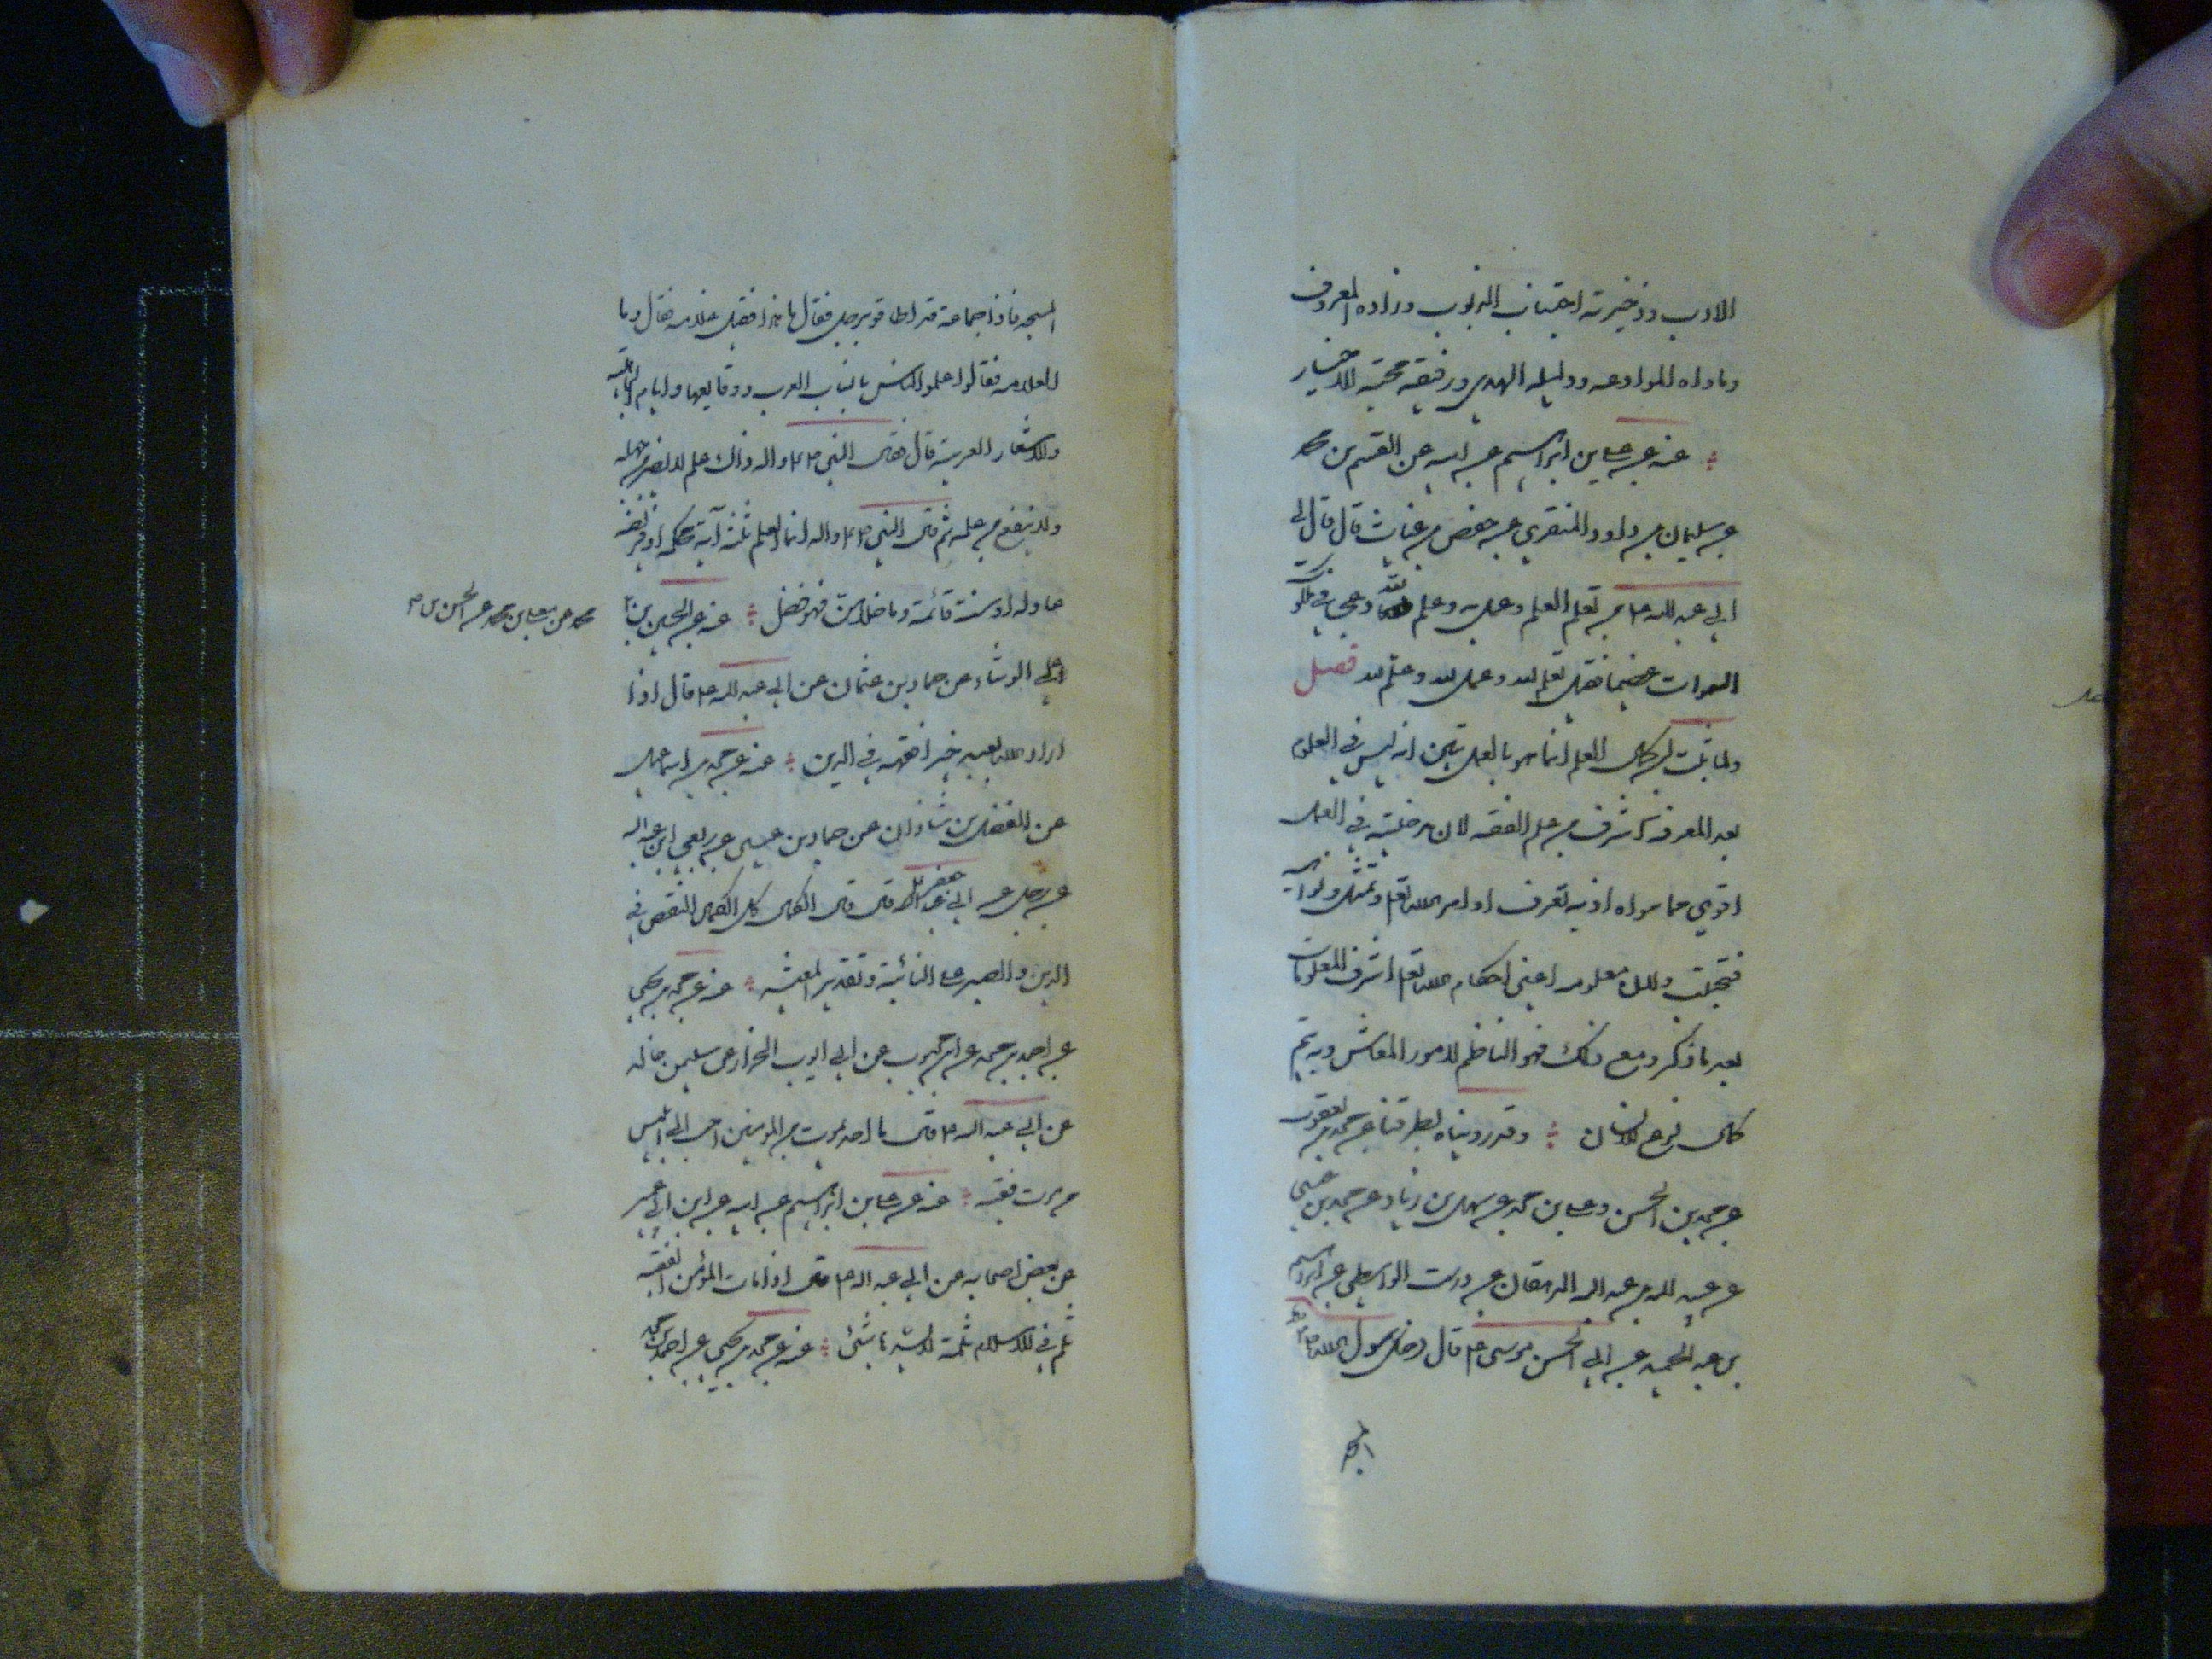 الادب وذخيرته اجتناب الذنوب وزاده المعروف
وماواه الموادعه ودليله الهدى ورفيقه محبة الاخيار
عنه عن علي بن ابراهيم عن ابيه عن القسم بن محمد
عن سليمان بن داود المنقري عن حفص بن غياث قال قال لي
ابي عبد الله ع من تعلم العلم وعمل به وعلم لله دعي في ملكوت
السموات عظيما فقيل تعلم لله وعمل لله وعلم لله فصل
ولما ثبت ان كمال العلم انما هو بالعمل تبين انه ليس في العلوم
بعد المعرفة اشرف من علم الفقه لان مدخليته في العمل
اقوى مما سواه اذ به تعرف اوامر الله تعالى فتمتثل ونواهيه
فتجتنب ولان معلومه اعني احكام الله تعالى اشرف المعلومات
بعد ما ذكر ومع ذلك فهو الناظم لامور المعاش وبه يتم
كمال نوع الانسان وقد روينا بطرقنا عن محمد بن يعقوب
عن محمد بن الحسن وعلي بن محمد عن سهل بن زياد عن محمد بن عيسى
عن عبيد الله بن عبد الله الدهقان عن درست الواسطي عن ابراهيم
بن عبد الحميد عن ابي الحسن موسى ع قال دخل رسول الله ص
المسجد فاذا جماعة قد اطافوا برجل فقال ما هذا فقيل علامه فقال وما
العلامه فقالوا اعلم الناس بانساب العرب ووقايعها وايام الجاهلية
والاشعار العربية قال فقال النبي ص واله ذاك علم لا يضر من جهله
ولا ينفع من علمه ثم قال النبي ص واله انما العلم ثلثة آية محكمة او فريضة
عادله او سنة قائمة وما خلاهن فهو فضل عنه عن الحسين بن
محمد عن معلى بن محمد عن الحسن بن
علي الوشاء عن حماد بن عثمان عن ابي عبد الله ع قال اذا
اراد الله بعبد خيرا فقهه في الدين عنه عن محمد بن اسماعيل
عن الفضل بن شاذان عن حماد بن عيسى عن ربعي ابن عبد الله
عن رجل عن ابي جعفر ع قال قال الكمال كل الكمال التفقه في
الدين والصبر على النائبة وتقدير المعيشه عنه عن محمد بن يحيى
عن احمد بن محمد عن ابن محبوب عن ابي ايوب الخزاز عن سليمن بن خالد
عن ابي عبد الله ع قال ما احد يموت من المومنين احب الى ابليس
من موت فقيه عنه عن علي بن ابراهيم عن ابيه عن ابن ابي عمير
عن بعض اصحابه عن ابي عبد الله ع قال اذا مات المؤمن الفقيه
ثلم في الاسلام ثلمة لا يسدها شئ عنه عن محمد بن يحيى عن احمد بن محمد